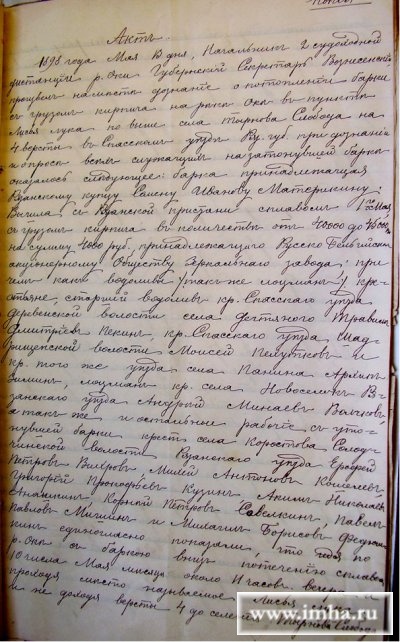 Копія
Актъ.
1898 года Мая дня, Начальникъ 2 судоходной
дистанціи р. Оки Губернскій Секретарь Вознесенскій
произвелъ на мѣстѣ дознаніе о потопленіи баржи
съ грузомъ кирпича на рѣкѣ Окѣ въ пунктѣ
Лисья лука по выше села Тырнова Слобода на
4 версты въ Спасскомъ уѣздѣ Ряз. губ. при дознаніи
и опросѣ всѣхъ служащихъ на затонувшей баржѣ
оказалось слѣдующее: баржа принадлежащая
Рязанскому купцу Семену Иванову Материкину;
вышла съ Рязанской пристани сплавомъ 1го Мая
съ грузомъ кирпича въ количествѣ отъ 40000 до
на сумму руб. принадлежащаго Русско Бельгійскому
акціонерному Обществу зеркальнаго завода; при
чемъ какъ водоливы также лоцманъ кре-
стьяне, старшій водоливъ кр. Спасскаго уѣзда
Деревенской волости села Дегтянаго
Дмитріевъ Кекинъ, кр. Спасскаго уѣзда Шад-
рищенской волости Моисей и
кр. того же уѣзда села Панина
Зиминъ, лоцманъ кр. села Новоселки Ря-
занскаго уѣзда Андрей Минаевъ
а такъ же и остальные рабочіе съ уто-
нувшей баржи крест. села Коростова Солод-
чинской волости Рязанскаго уѣзда Ерофей
Петровъ Антоновъ
Григорій Прокофьевъ Кузинъ, Акимъ Николаевъ
Ананкинъ Корней Петровъ Савелкинъ, Павелъ
Павловъ Мишинъ и Михаилъ Борисовъ
единогласно показали, что идя по
р. Окѣ съ баржою внизъ по теченію сплавомъ
10 числа Мая мѣсяца около 11 часовъ вечера и
проходя мѣсто называемое Лисья
и не доходя версты 4 до селенія Тырнова Слобо.
www.imha.ru